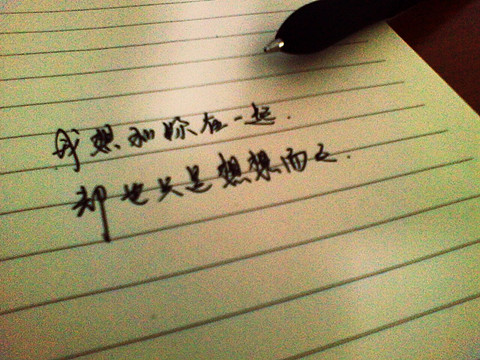 我想和你在一起.
却也只是想想而已.